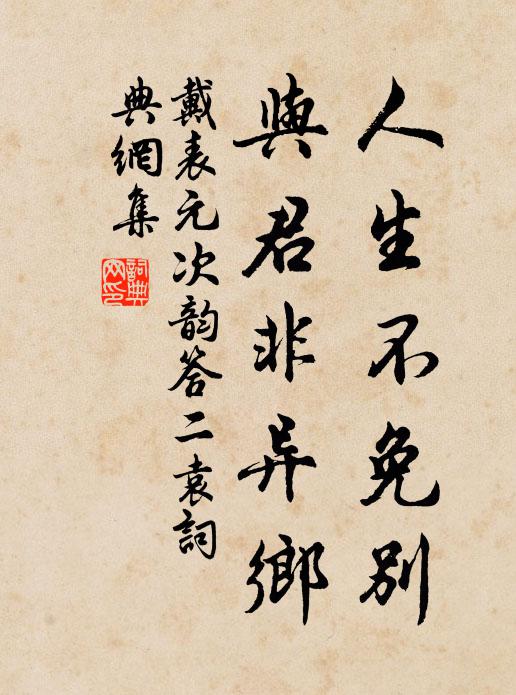 人生不免别
與君非异鄉
戴表元次韵答二袁詞
典網集
詞典
网印